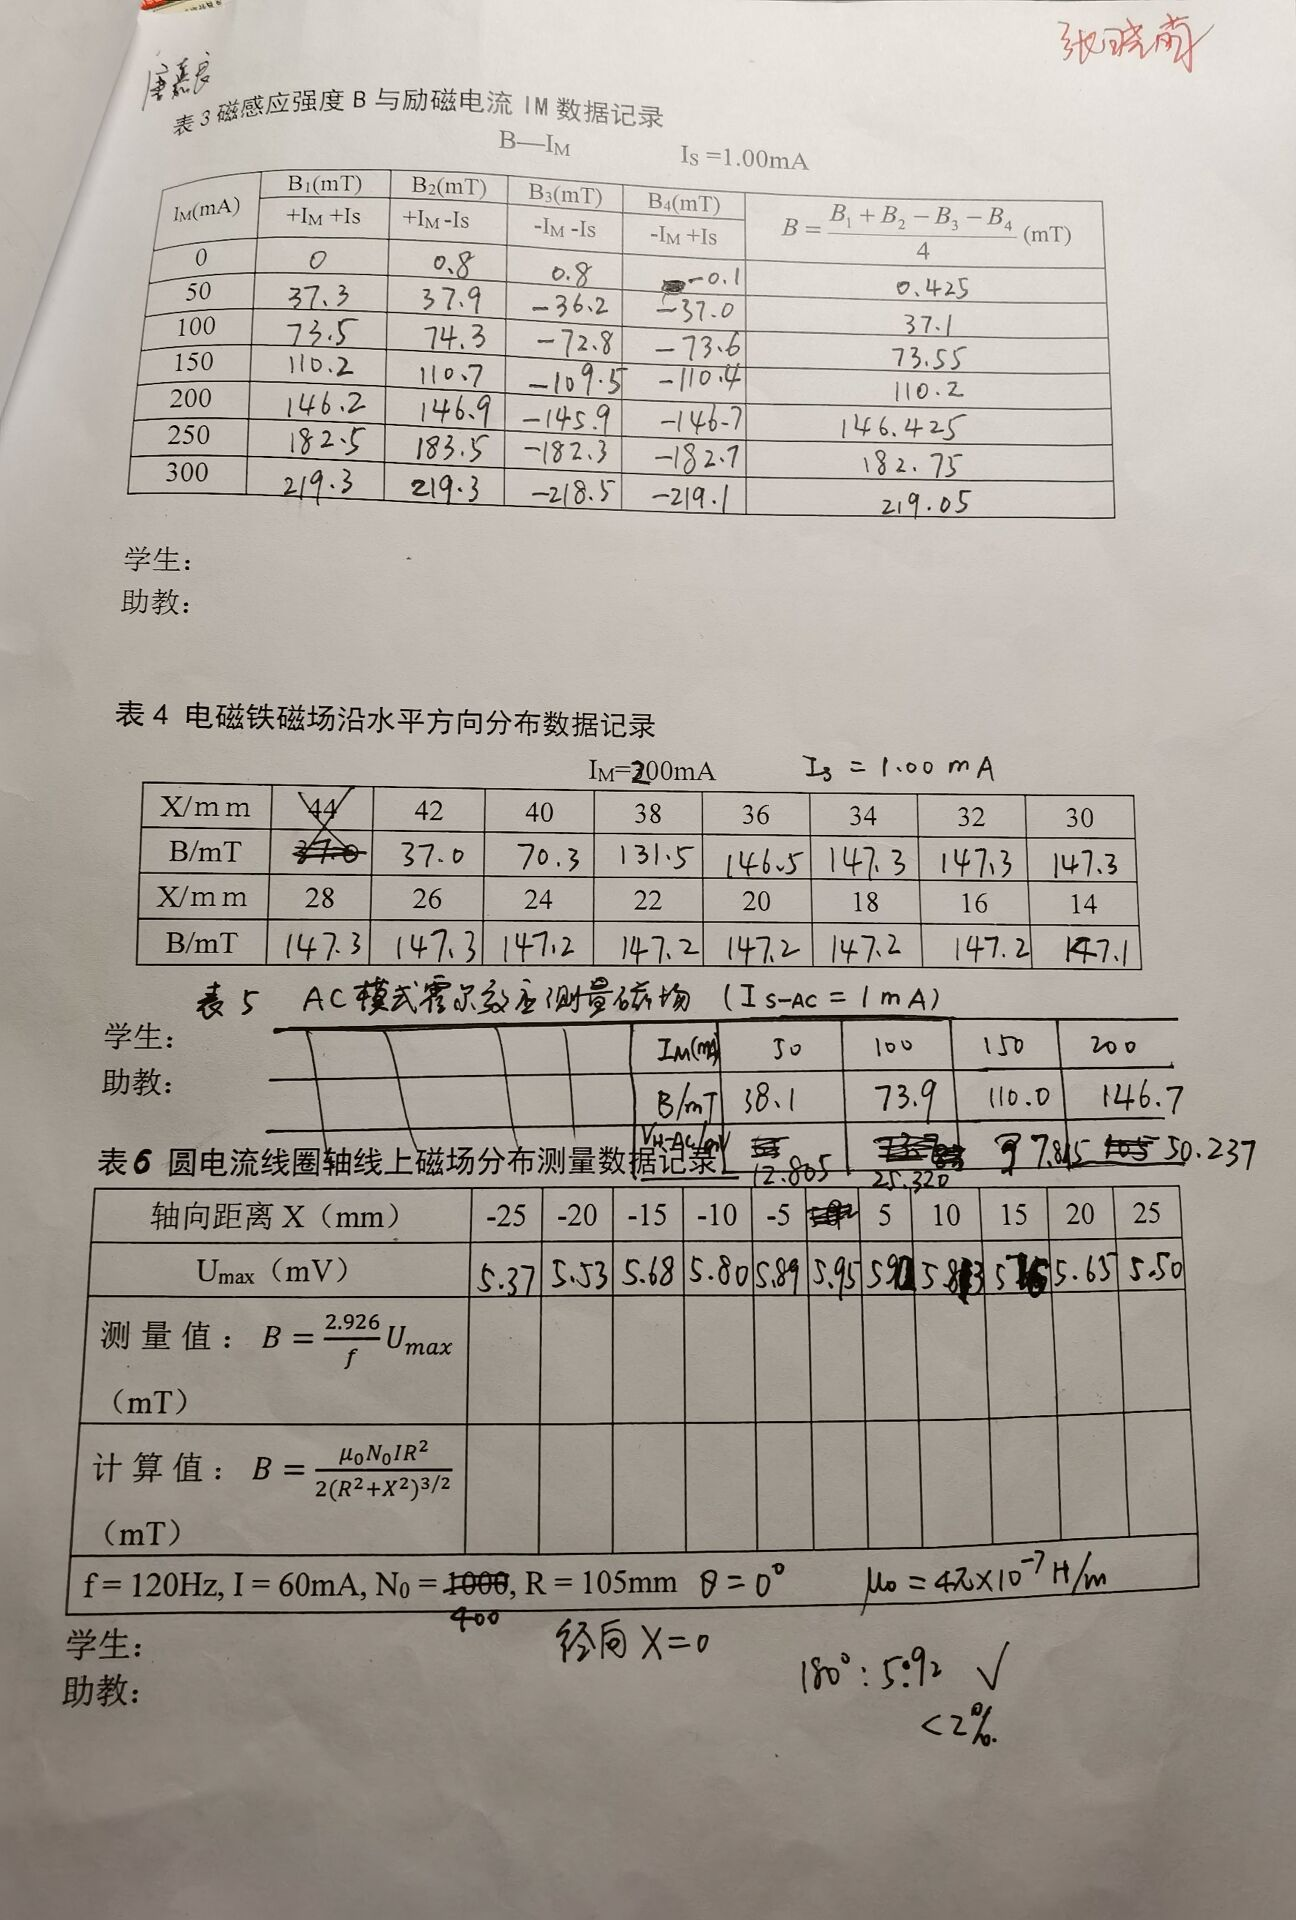 张晓菌
表3磁感应强度 B 与励磁电流 IM 数据记录
B—IM IS =1.00mA
IM(mA) B1(mT) B2(mT) B3(mT) B4(mT) B = (B1 + B2 − B3 − B4)/4 (mT)
+IM +Is +IM -Is -IM -Is -IM +Is
0 0 0.8 0.8 -0.1 0.425
50 37.3 37.9 -36.2 -37.0 37.1
100 73.5 74.3 -72.8 -73.6 73.55
150 110.2 110.7 -109.5 -110.4 110.2
200 146.2 146.9 -145.9 -146.7 146.425
250 182.5 183.5 -182.3 -182.7 182.75
300 219.3 219.3 -218.5 -219.1 219.05
学生：
助教：
表4 电磁铁磁场沿水平方向分布数据记录
IM=200mA Is = 1.00 mA
X/mm 44 42 40 38 36 34 32 30
B/mT 37.0 37.0 70.3 131.5 146.5 147.3 147.3 147.3
X/mm 28 26 24 22 20 18 16 14
B/mT 147.3 147.3 147.2 147.2 147.2 147.2 147.2 147.1
表5 AC模式霍尔效应测量磁场 (I S-AC = 1mA)
学生：
助教：
IM(mA) 50 100 150 200
B/mT 38.1 73.9 110.0 146.7
VH-AC/mV 12.805 25.320 7.815 50.237
表6 圆电流线圈轴线上磁场分布测量数据记录
轴向距离 X（mm） -25 -20 -15 -10 -5 5 10 15 20 25
Umax（mV） 5.37 5.53 5.68 5.80 5.89 5.95 5.65 5.50
测量值：B = 2.926/f Umax
（mT）
计算值：B = μ0N0IR²/2(R²+X²)^3/2
（mT）
f = 120Hz, I = 60mA, N0 = 1000, R = 105mm θ = 0° μ0 = 4π×10⁻⁷ H/m
400
学生：
助教：
径向 X=0
180°: 5.92 √
<2%.